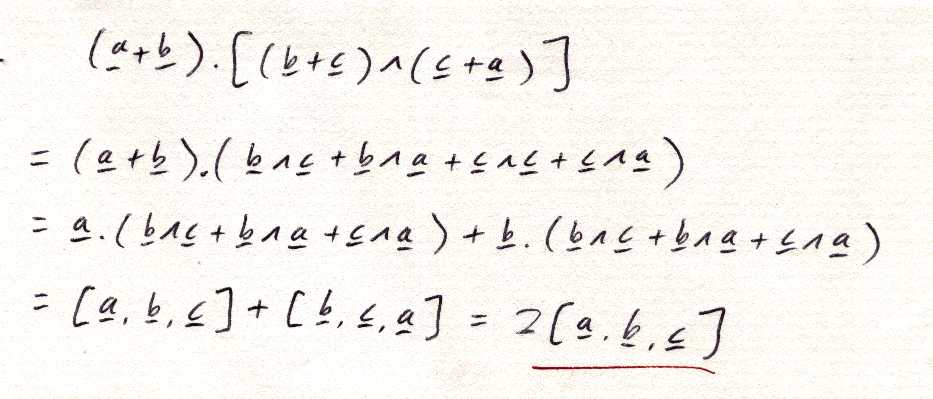 (a̲+b̲).[(b̲+c̲)∧(c̲+a̲)]
= (a̲+b̲).(b̲∧c̲+b̲∧a̲+c̲∧c̲+c̲∧a̲)
= a̲.(b̲∧c̲+b̲∧a̲+c̲∧a̲)+b̲.(b̲∧c̲+b̲∧a̲+c̲∧a̲)
= [a̲,b̲,c̲]+[b̲,c̲,a̲] = 2[a̲,b̲,c̲]